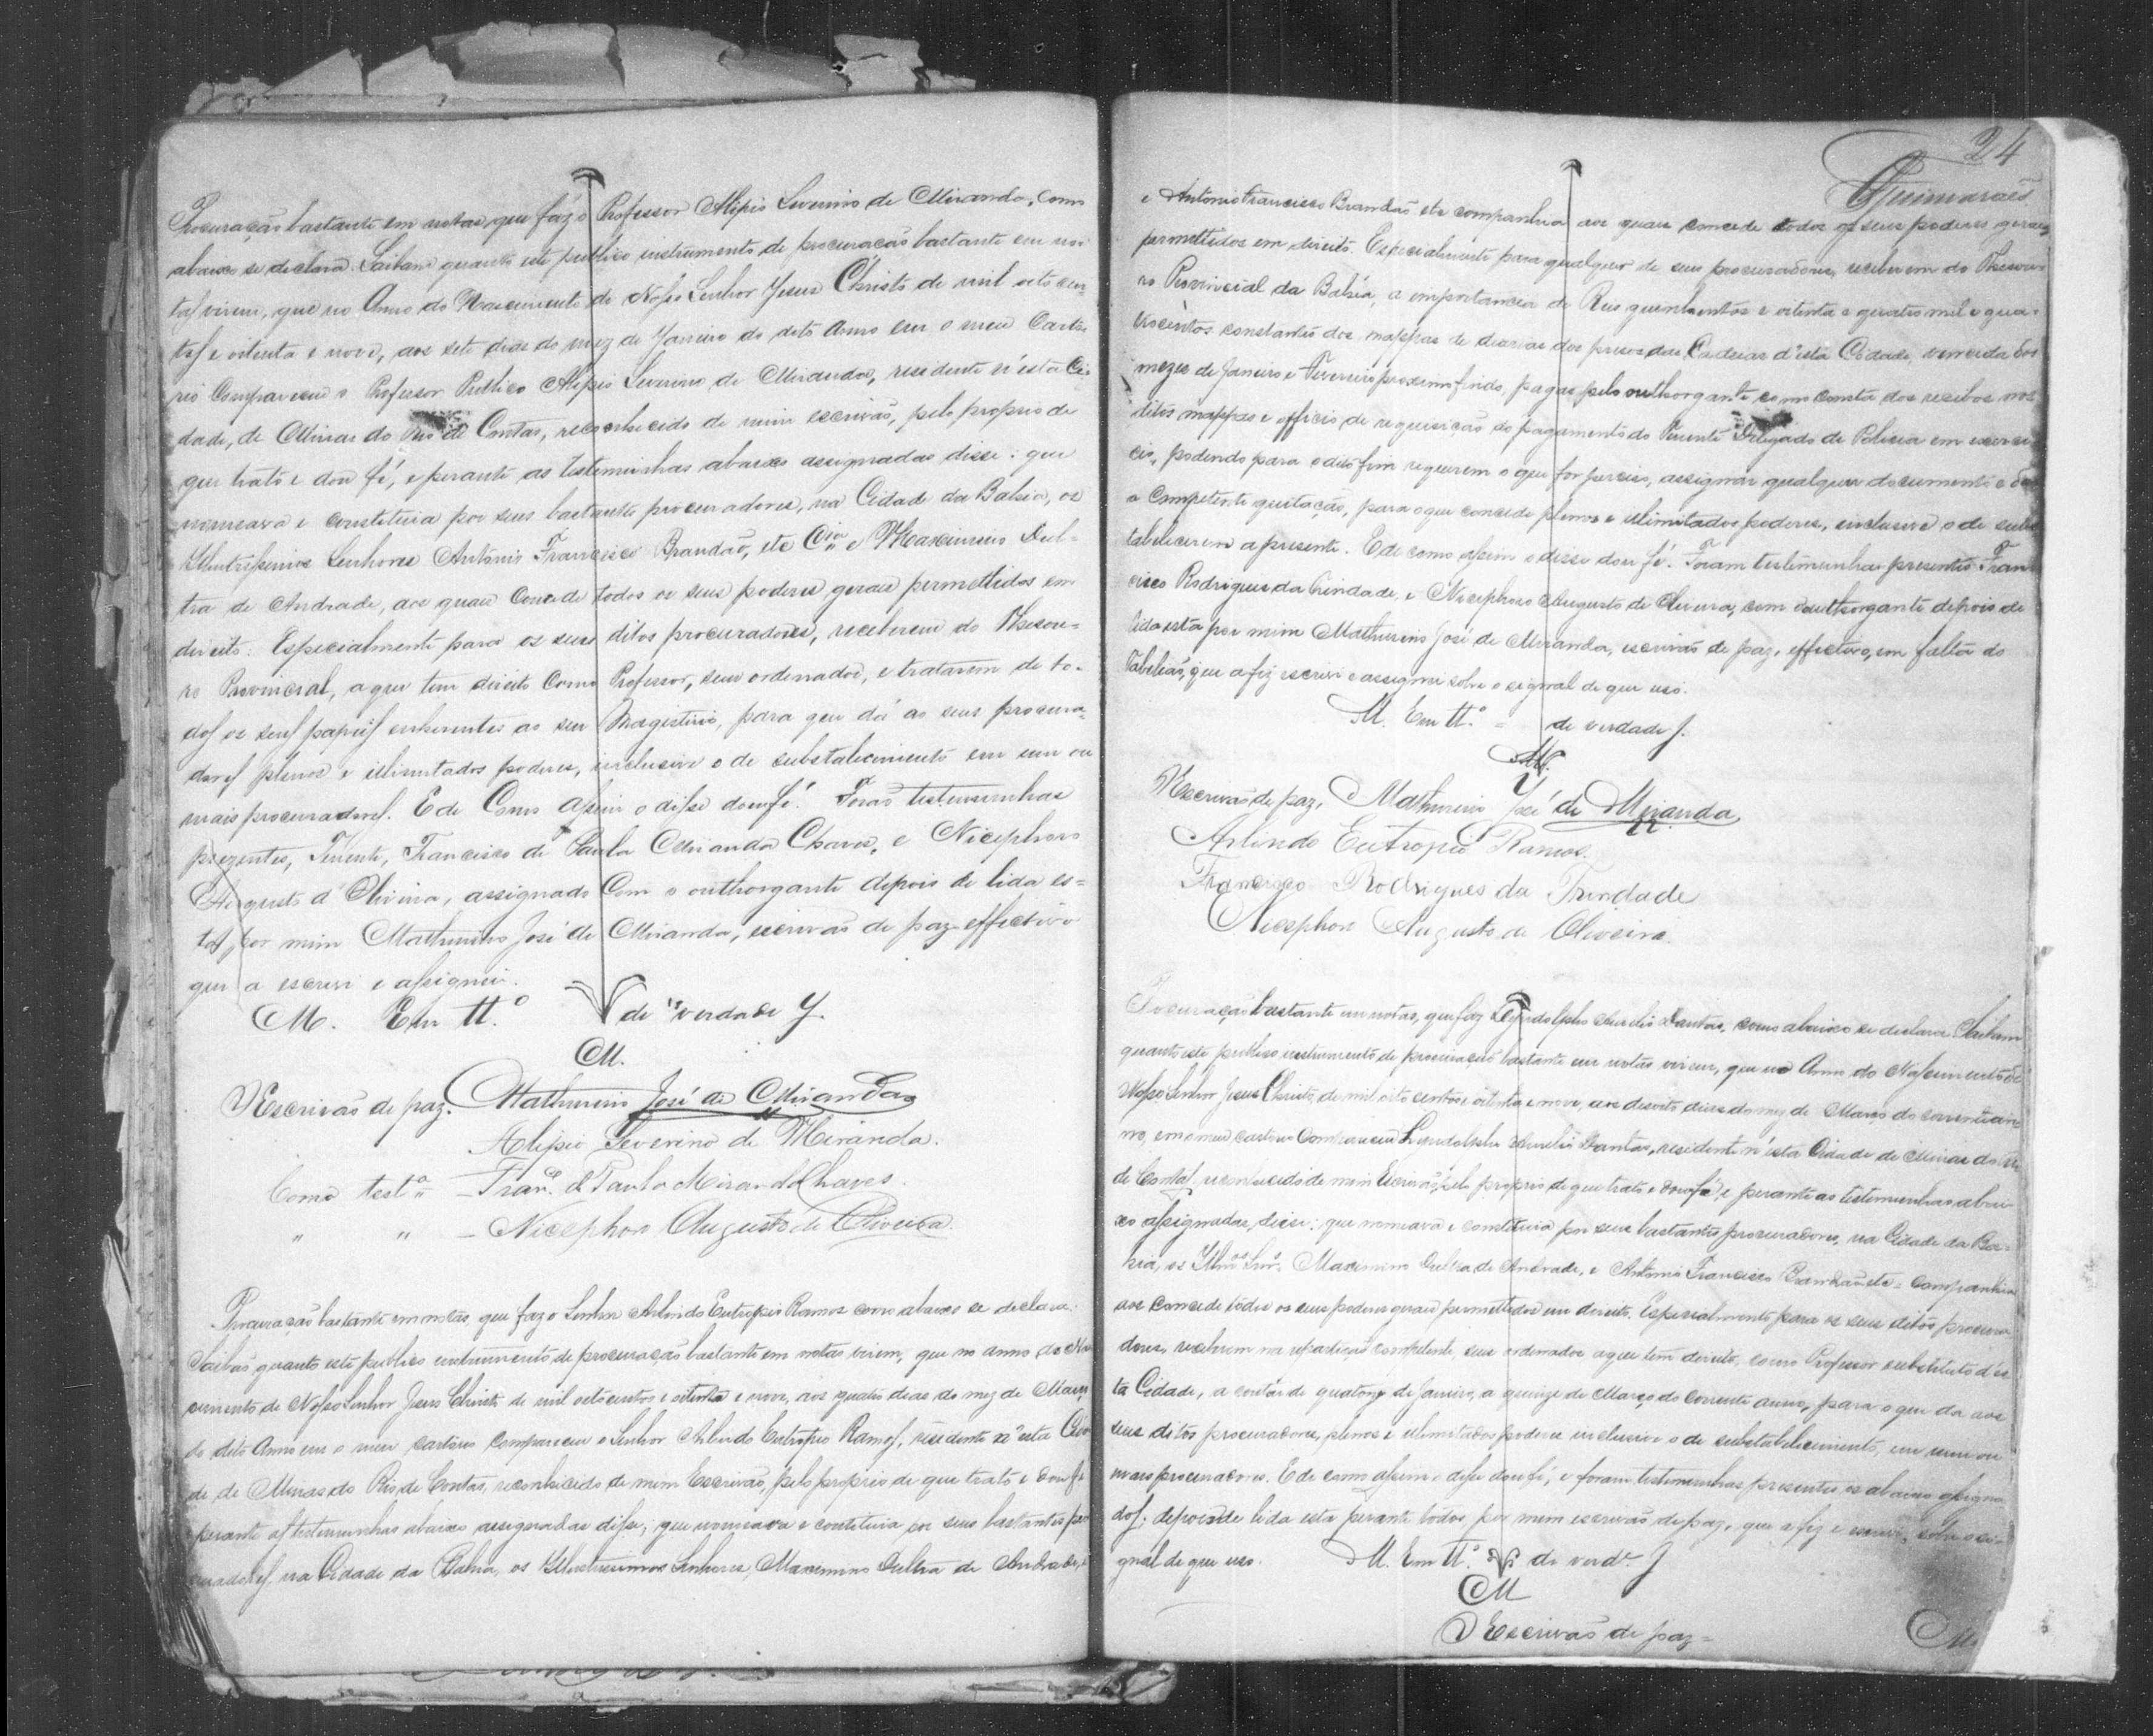 Procuração bastante em notas, que faz o Professor Alipio Severino de Miranda, como
abaixo se declara. Saibam quanto este publico instrumento de procuração bastante em no-
tas virem, que no Anno do Nascimento de Nosso Senhor Jesus Christo de mil oito cen-
tos e oitenta e nove, aos sete dias do mez de Janeiro do dito Anno em o meu Carto-
rio Compareceu o Professor Publico Alipio Severino de Miranda, residente n'esta Ci-
dade, de Minas do Rio de Contas, reconhecido de mim escrivão, pelo proprio de
que trato e dou fé, e perante as testemunhas abaixo assignadas disse: que
nomeava e constituia por seus bastante procuradores, na Cidade da Bahia, os
Illustrissimos Senhores Antônio Francisco Brandão, etc Cia e Maximino Dul-
tra de Andrade, aos quaes Concede todos os seus poderes geraes permettidos em
direito: Especialmente para os seus ditos procuradores, receberem do Thesou-
ro Provincial, a que tem direito Como Professor, seus ordenados, e tratarem de to-
dos os seus papeis enherentes ao seu Magisterio, para que dá ao seus procura-
dores plenos e illimitados poderes, inclusive o de substalecimento em um ou
mais procuradores. E de Como assim o disse dou fé. Forão testemunhas
prezentes, Tenente, Francisco de Paula Miranda Chaves, e Nicephoro
Augusto d'Oliveira, assignado Com o outhorgante depois de lida es-
tas por mim Mathurino José de Miranda, escrivão de paz effectivo
que a escrevi e assignei.
M. Em tt.o de verdade J.
M.
O Escrivão de paz. Mathurino José de Miranda
Alipio Severino de Miranda.
Como test.a - Fran.co de Paula Miranda Chaves.
" " - Nicephoro Augusto de Oliveira.
Procuração bastante em notas, que faz o Senhor Arlindo Eutropio Ramos como abaixo se declara.
Saibão quanto este publico instrumento de procuração bastante em notas virem, que no anno do Nas-
cimento de Nosso Senhor Jesus Christo de mil oitocentos e oitenta e nove, aos quatro dias do mez de Março
do dito Anno em o meu cartorio compareceu o Senhor Arlindo Eutropio Ramos, residente n'esta Cida-
de de Minas do Rio de Contas, reconhecido de mim Escrivão, pelo proprio de que trato e dou fé
perante as testemunhas abaixo assignadas disse; que nomeava e constituia por seus bastantes pro-
curadores, na Cidade da Bahia, os Illustrissimos Senhores, Maximino Dultra de Andrade,
24
Guimarães
e Antonio Francisco Brandão etc companhia aos quaes concede todos os seus poderes geraes
permettidos em direito. Especialmente para qualquer de seus procuradores, receberem do Thesou-
ro Provincial da Bahia, a importancia de Reis quinhentos e oitenta e quatro mil e qua-
trocentos constantes dos mappas de diarias dos presos das Cadeias d'esta Cidade, vencidas dos
mezes de Janeiro e Fevereiro proximo findo, pagas pelo outhorgante como consta dos recibos nos
ditos mappas e officio de requisição do pagamento do Tenente Delegado de Policia em exerci-
cio, podendo para o dito fim requerem o que for preciso, assignar qualquer documento e dar
a competente quitação, para o que concede plenos e ulimitados poderes, inclusive o de subs-
tabelecerem a presente. E de como assim o disse dou fé. Foram testemunhas presentes Fran-
cisco Rodrigues da Trindade, e Nicephoro Augusto de Oliveira, com o outhorgante depois de
lida esta por mim Mathurino José de Miranda, escrivão de paz, effectivo, em falta do
Tabelião, que a fiz escrevi e assignei sobre o signal de que uso.
M. Em tt.o = de verdade J.
M.
O Escrivão de paz, Mathurino José de Miranda
Arlindo Eutropio Ramos.
Francisco Rodrigues da Trindade
Nicephoro Augusto de Oliveira.
Procuração bastante em notas, que faz Lyndolpho Aurelio Dantas, como abaixo se declara Saibam
quanto este publico instrumento de procuração bastante em notas virem, que no Anno do Nascimento de
Nosso Senhor Jesus Christo, de mil oito centos e oitenta e nove, aos desoito dias do mez de Março do corrente an-
no, em o meu cartorio Compareceu Lyndolpho Aurelio Dantas, residente n'esta Cidade de Minas do Rio
de Contas, reconhecido de mim Escrivão, pelo proprio de que trato e dou fé, e perante as testemunhas abai-
xo assignadas, disse: que nomeava e constituia por seus bastantes procuradores, na Cidade da Ba-
hia, os Illmos Snrs. Maximino Dultra de Andrade, e Antonio Francisco Brandão etc. companhia
aos concede todos os seus poderes geraes permettidos em direito. Especialmente para os seus ditos procura-
dores, receberem na repartição competente, seus ordenados a que tem direito, como Professor substituto d'es-
ta Cidade, a contar de quatorze de Janeiro, a quinze de Março do corrente anno, para o que da aos
seus ditos procuradores, plenos e ulimitados poderes inclusive o de substabelecimento, em um ou
mais procuradores. E de como assim o disse dou fé, e foram testemunhas presentes os abaixo assigna-
dos, depois de lida esta perante todos, por mim escrivão de paz, que a fiz e escrevi, sobre o si-
gnal de que uso. M. Em tt.o de verd.e J
M
O Escrivão de paz =